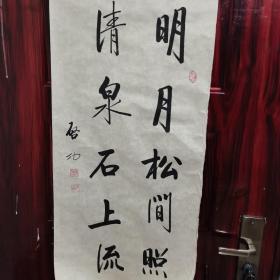 明月松間照
清泉石上流
启功